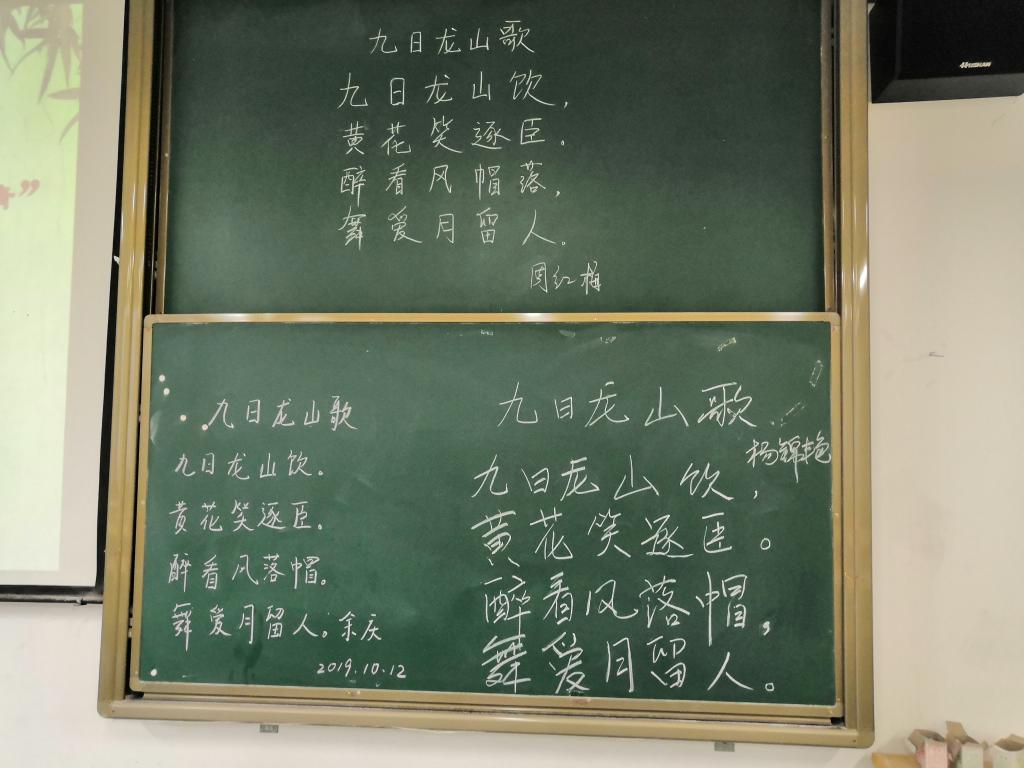 九日龙山歌
九日龙山饮，
黄花笑逐臣。
醉看风帽落，
舞爱月留人。
周红梅
九日龙山歌
九日龙山饮。
黄花笑逐臣。
醉看风落帽。
舞爱月留人。余庆
2019.10.12
九日龙山歌
杨锦艳
九日龙山饮，
黄花笑逐臣。
醉看风落帽，
舞爱月留人。